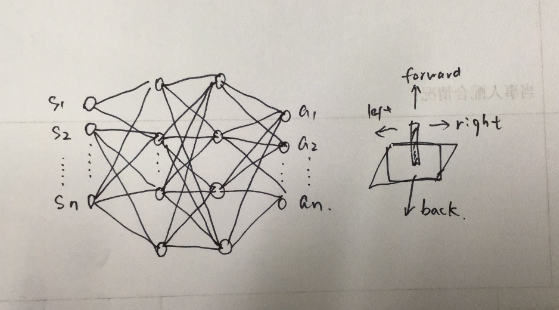 S1
S2
Sn
a1
a2
an.
forward
left
right
back.